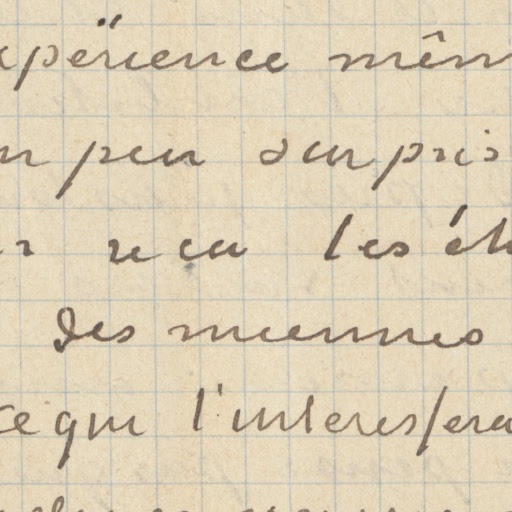 expérience mêm
un peu surpris
reçu les ét
des miennes
ce qui l'interessera